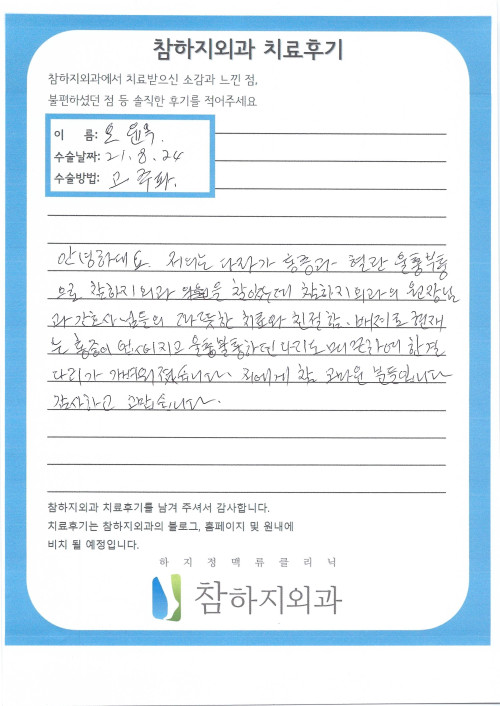 참하지외과 치료후기
참하지외과에서 치료받으신 소감과 느낀 점,
불편하셨던 점 등 솔직한 후기를 적어주세요
이 름: 오 윤옥.
수술날짜: 21. 8. 24
수술방법: 고 주파.
안녕하세요. 저희는 다리가 통증과 혈관 울퉁부퉁
으로 참하지외과 을 찾아왔는데 참하지외과의 원장님
과 간호사님들의 따뜻한 치료와 친절함. 배려로 현재
는 통증이 없어지고 울퉁불퉁하던 다리도 매끈하여 한결
다리가 가벼워졌습니다. 저에게 참 고마운 분들입니다
감사하고 고맙습니다.
참하지외과 치료후기를 남겨 주셔서 감사합니다.
치료후기는 참하지외과의 블로그, 홈페이지 및 원내에
비치 될 예정입니다.
하지정맥류클리닉
참하지외과